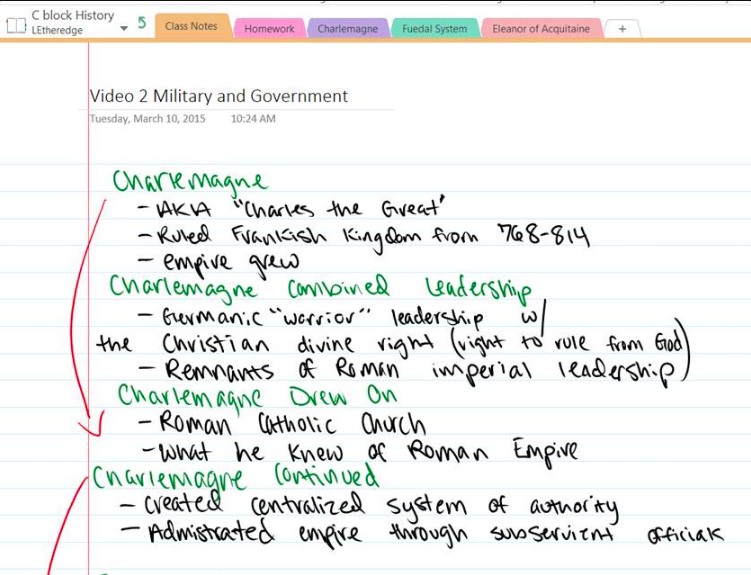 C block History
LEtheredge
5
Class Notes
Homework
Charlemagne
Fuedal System
Eleanor of Acquitaine
+
Video 2 Military and Government
Tuesday, March 10, 2015 10:24 AM
Charlemagne
- AKA "Charles the Great"
- Ruled Frankish Kingdom from 768-814
- empire grew
Charlemagne Combined Leadership
- Germanic "warrior" leadership w/
the Christian divine right (right to rule from God)
- Remnants of Roman imperial leadership)
Charlemagne Drew On
- Roman Catholic Church
- What he knew of Roman Empire
Charlemagne Continued
- Created centralized system of authority
- Admistrated empire through subservient officials